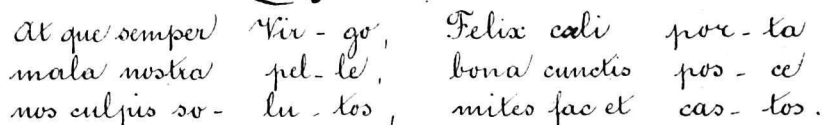 At que semper Vir - go, Felix cæli por - ta
mala nostra pel - le, bona cunctis pos - ce
nos culpis so - lu - tos, mites fac et cas - tos.